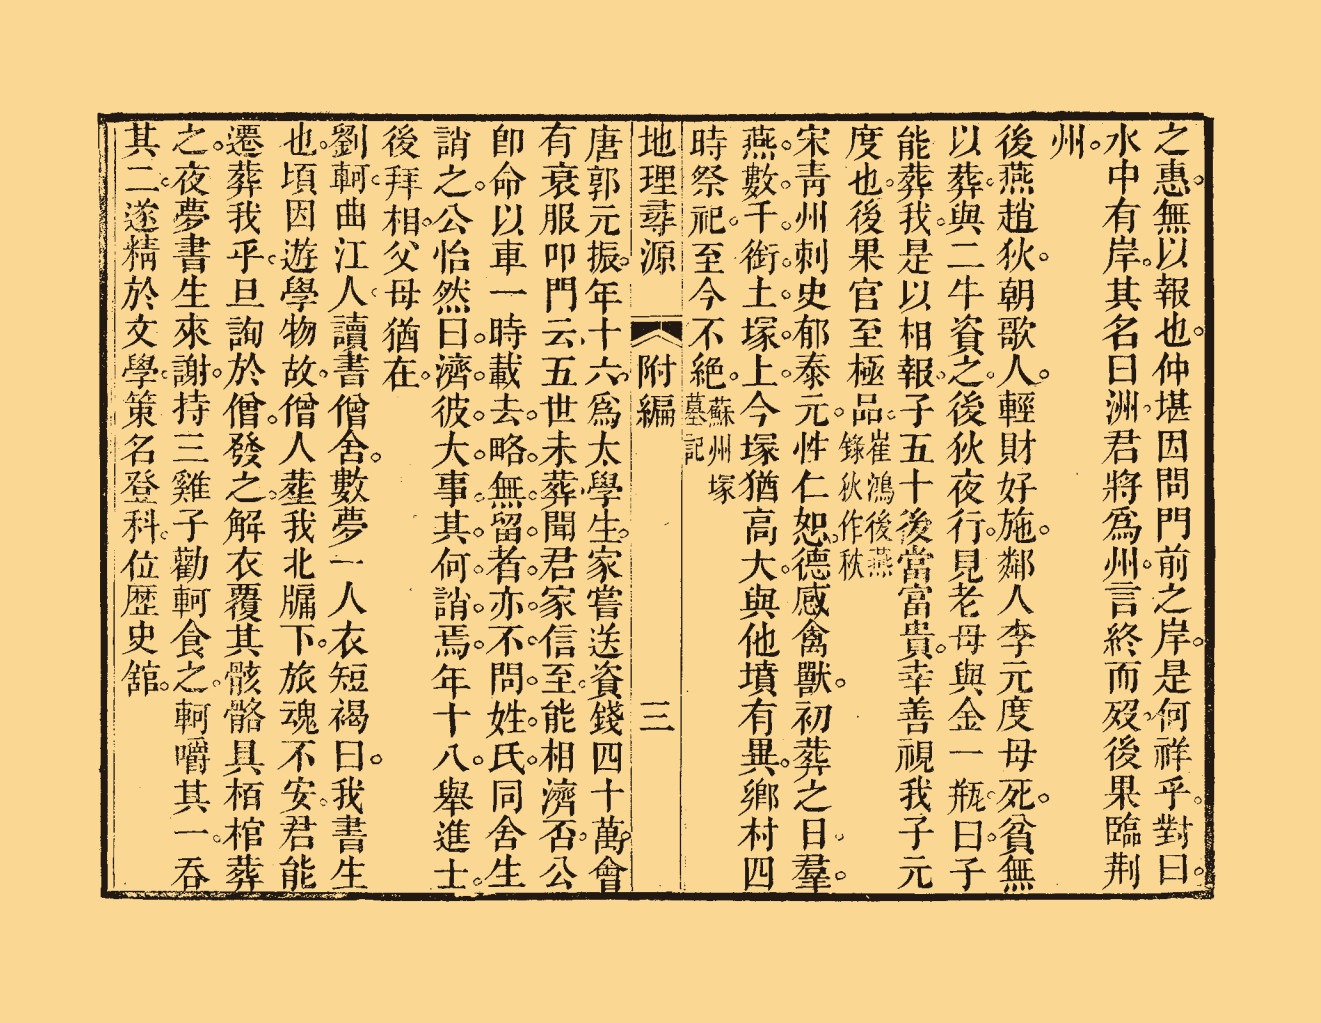 之惠無以報也仲堪因問門前之岸是何祥乎對曰
水中有岸其名曰洲君將爲州言終而歿後果臨荆
州
後燕趙狄朝歌人輕財好施鄰人李元度母死貧無
以葬與二牛資之後狄夜行見老母與金一瓶曰子
能葬我是以相報子五十後當富貴幸善視我子元
度也後果官至極品崔鴻後燕
錄狄作秋
宋青州刺史郁泰元性仁恕德感禽獸初葬之日羣
燕數千銜土塚上今塚猶高大與他墳有異鄉村四
時祭祀至今不絶蘇州塚
墓記
地理尋源 附編 三
唐郭元振年十六爲太學生家嘗送資錢四十萬會
有衰服叩門云五世未葬聞君家信至能相濟否公
卽命以車一時載去略無留者亦不問姓氏同舍生
誚之公怡然曰濟彼大事其何誚焉年十八舉進士
後拜相父母猶在
劉軻曲江人讀書僧舍數夢一人衣短褐曰我書生
也頃因遊學物故僧人塟我北牖下旅魂不安君能
遷葬我乎旦詢於僧發之解衣覆其骸骼具栢棺葬
之夜夢書生來謝持三雞子勸軻食之軻嚼其一吞
其二遂精於文學策名登科位歴史舘